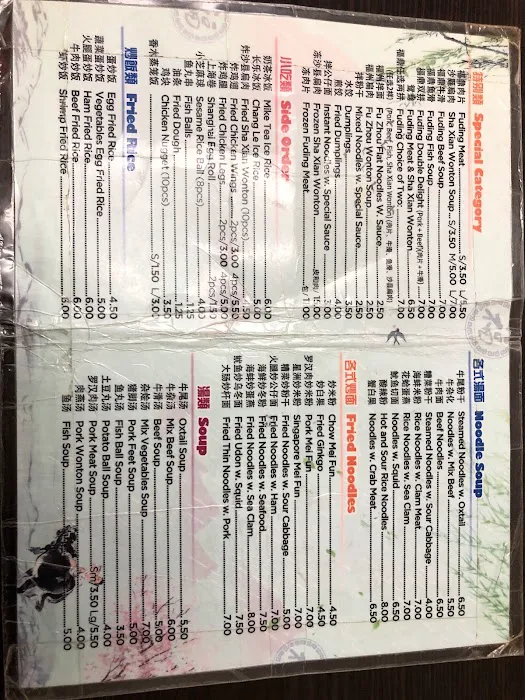 特別類 Special Category
福鼎肉片 Fuding Meat S/3.50 L/5.50
沙縣扁肉 Sha Xian Wonton Soup S/3.50 M/5.00 L/7.00
福鼎牛滑 Fuding Beef Soup 7.00
福鼎魚滑 Fuding Fish Soup 7.00
福鼎双拼 Fuding Double Delight (Pork+Beef)(肉片+牛滑) 7.00
鴛鴦 Fuding Meat & Sha Xian Wonton 6.50
福鼎任选两拼 Fuding Choice of Two: 7.00
(任选2样) Pork, Beef, Fish, Sha Xian Wonton (肉片, 牛滑, 魚滑, 沙县扁肉)
福州拌面 Fu Zhou Flat Noodles W. Sauce 2.50
福州扁肉 Fu Zhou Wonton Soup 2.50
拌粉干 Mixed Noodles w. Special Sauce 2.50
水饺 Dumplings 3.50
煎饺 Fried Dumplings 4.00
拌公仔面 Instant Noodles w. Special Sauce 3.00
冻沙县扁肉 Frozen Sha Xian Wonton 15.00
冻肉片 Frozen Fuding Meat 11.00
小吃類 Side Order
奶茶冰饭 Milke Tea Ice Rice 6.00
长乐冰饭 Chang Le Ice Rice 6.00
炸沙县扁肉 Fried Sha Xian Wonton (10pcs) 4.50
炸鸡翅 Fried Chicken Wings 2pcs/3.00 4pcs/5.50
炸鸡腿 Fried Chicken Legs 2pcs/3.00 4pcs/5.00
上海卷 Shanghai Egg Roll 2pcs/1.51
小芝麻球 Sesame Rice Ball (8pcs) 4.00
鱼丸串 Fish Balls 1.25
油条 Fried Dough 1.25
鸡块 Chicken Nugget (10pcs) 3.50
香木蒸笼饭 S/1.50 L/3.00
炒飯類 Fried Rice
蛋炒饭 Egg Fried Rice 4.50
蔬菜蛋炒饭 Vegetables Egg Fried Rice 5.00
火腿蛋炒饭 Ham Fried Rice 6.00
牛肉炒饭 Beef Fried Rice 6.00
虾炒饭 Shrimp Fried Rice 6.00
各式湯面 Noodle Soup
牛尾粉干 Steamed Noodles w. Oxtail 6.50
牛杂片 Noodles w. Mix Beef 5.50
牛肉面 Beef Noodles 6.50
糟菜粉干 Steamed Noodles w. Sour Cabbage 4.00
海鲜米粉 Rice Noodles w. Clam Meat 7.00
花蛤蛋粉 Rice Noodles w. Sea Clam 7.00
鱿鱼切面 Noodles w. Squid 6.50
酸辣粉 Hot and Sour Rice Noodles 8.00
蟹白果 Noodles w. Crab Meat 6.50
各式炒面 Fried Noodles
炒米粉 Chow Mei Fun 4.50
炒白果 Fried Ginkgo 4.50
罗汉肉炒米粉 Pork Mei Fun 7.00
星洲炒米粉 Singapore Mei Fun 7.00
糟菜炒粉干 Fried Noodles w. Sour Cabbage 5.00
火腿炒公仔面 Fried Noodles w. Ham 7.00
海鲜炒冬粉 Fried Noodles w. Seafood 7.50
海蚌炒蛋燕 Fried Noodles w. Sea Clam 8.00
鱿鱼炒乌冬面 Fried Udon w. Squid 7.50
大肠炒杆面 Fried Thin Noodles w. Pork 7.00
湯類 Soup
牛尾汤 Oxtail Soup 5.50
牛杂汤 Mix Beef Soup 6.00
牛滑汤 Beef Soup 5.00
杂烩汤 Mix Vegetables Soup 7.00
猪脚汤 Pork Feet Soup 5.00
鱼丸汤 Fish Ball Soup 3.50
土豆丸汤 Potato Ball Soup 4.00
罗汉肉汤 Pork Meat Soup Sm/3.50 Lg/5.50
肉燕汤 Pork Wonton Soup 4.00
鱼汤 Fish Soup 5.00